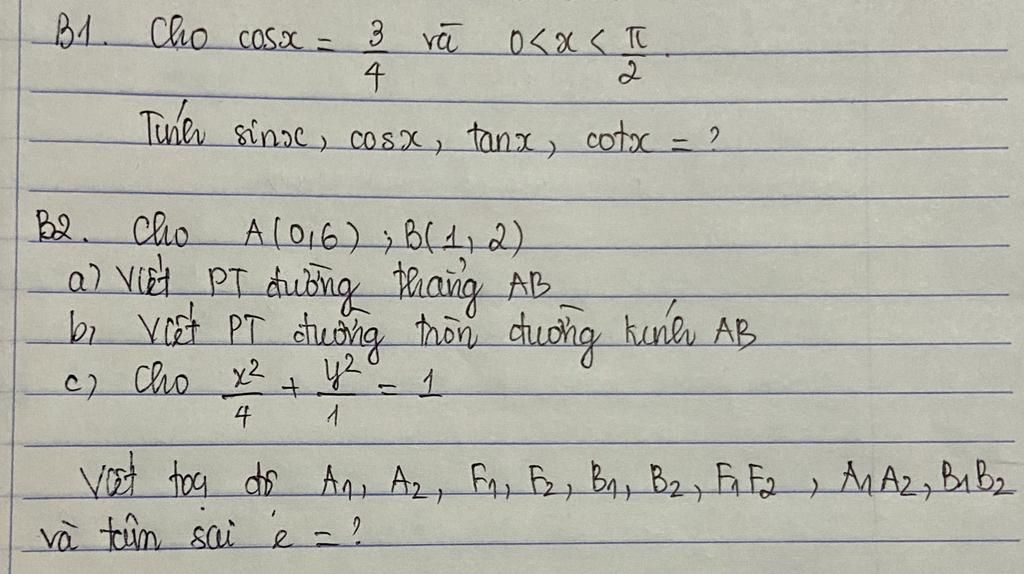 B1. Cho cosx = 3/4 và 0 < x < π/2.
Tính sinx, cosx, tanx, cotx = ?
B2. Cho A(0,6) ; B(1, 2)
a) Viết PT đường thẳng AB
b) Viết PT đường tròn đường kính AB
c) Cho x²/4 + y²/1 = 1
Viết toạ độ A1, A2, F1, F2, B1, B2, F1F2, A1A2, B1B2
và tâm sai e = ?